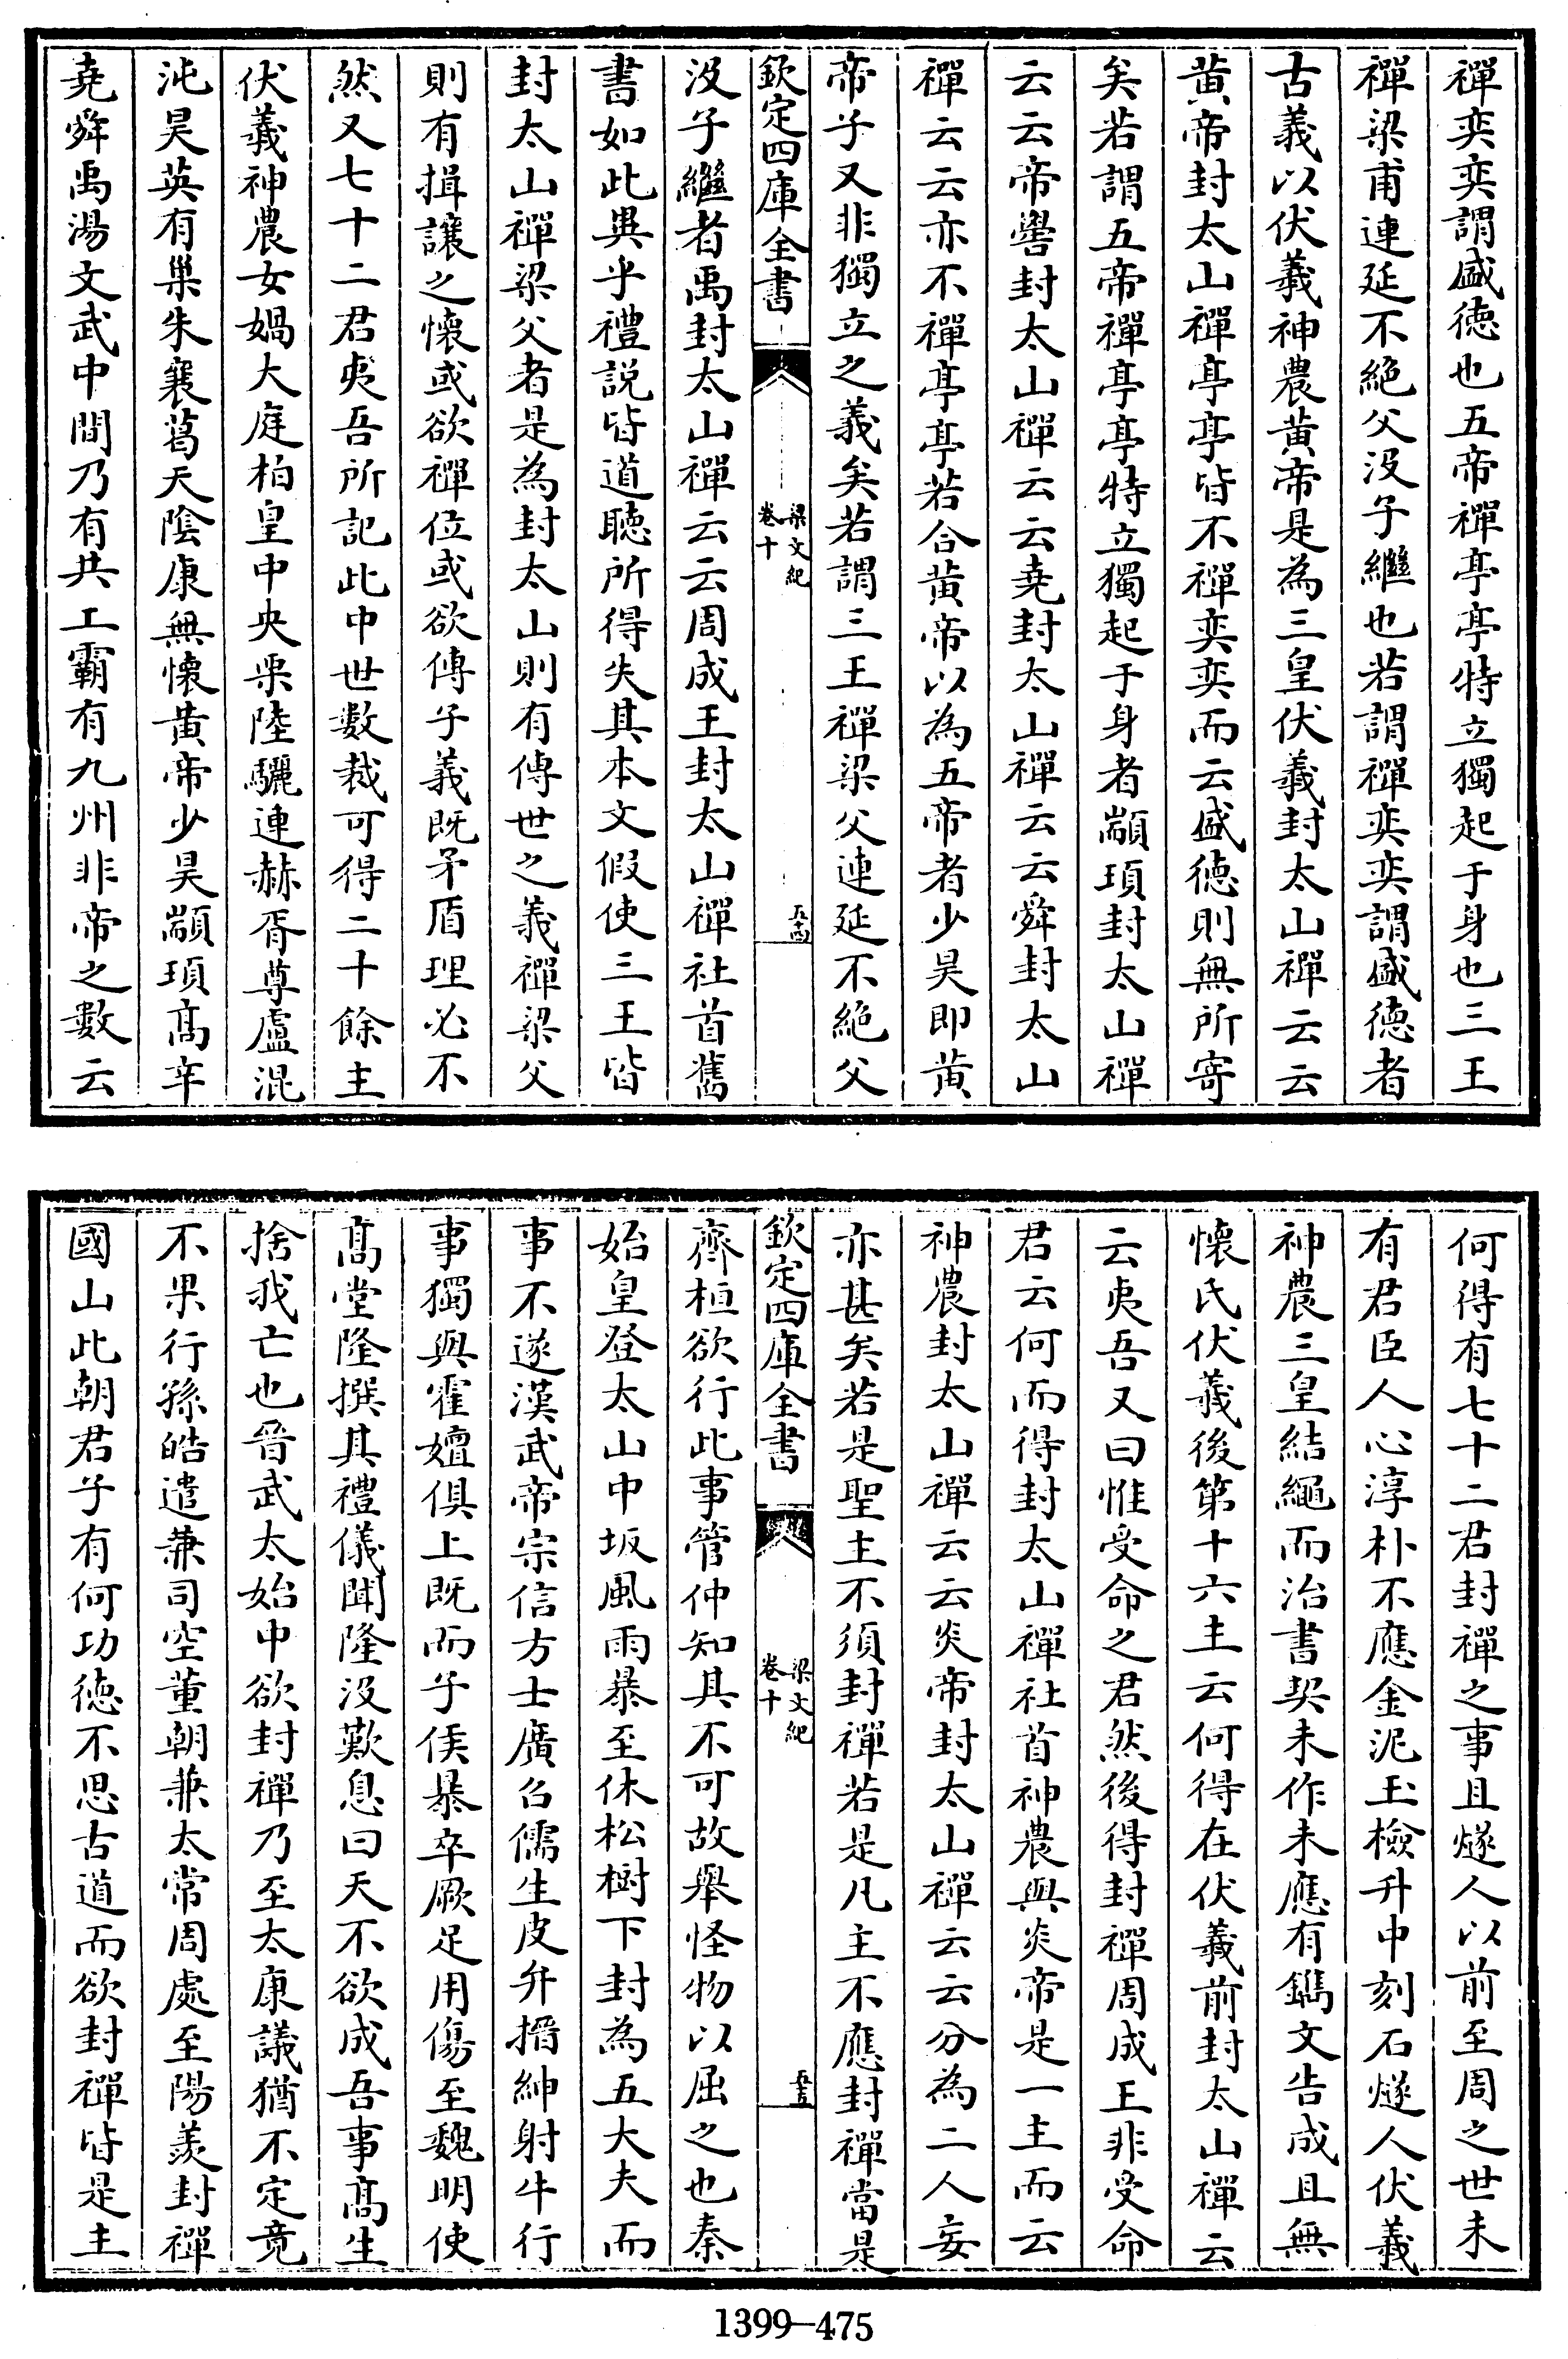 禪奕奕謂盛徳也五帝禪亭亭特立獨起于身也三王
禪梁甫連延不絶父没子繼也若謂禪奕奕謂盛徳者
古義以伏羲神農黄帝是為三皇伏羲封太山禪云云
黄帝封太山禪亭亭皆不禪奕奕而云盛徳則無所寄
矣若謂五帝禪亭亭特立獨起于身者顓頊封太山禪
云云帝嚳封太山禪云云堯封太山禪云云舜封太山
禪云云亦不禪亭亭若合黄帝以為五帝者少昊即黄
帝子又非獨立之義矣若謂三王禪梁父連延不絶父
欽定四庫全書
梁文紀
卷十
五十四
没子繼者禹封太山禪云云周成王封太山禪社首舊
書如此異乎禮説皆道聽所得失其本文假使三王皆
封太山禪梁父者是為封太山則有傳世之義禪梁父
則有揖讓之懷或欲禪位或欲傳子義既矛盾理必不
然又七十二君夷吾所記此中世數裁可得二十餘主
伏羲神農女媧大庭柏皇中央栗陸驪連赫胥尊盧混
沌昊英有巢朱襄葛天隂康無懷黄帝少昊顓頊髙辛
堯舜禹湯文武中間乃有共工霸有九州非帝之數云
何得有七十二君封禪之事且燧人以前至周之世未
有君臣人心淳朴不應金泥玉檢升中刻石燧人伏羲
神農三皇結繩而治書契未作未應有鐫文告成且無
懷氏伏羲後第十六主云何得在伏羲前封太山禪云
云夷吾又曰惟受命之君然後得封禪周成王非受命
君云何而得封太山禪社首神農與炎帝是一主而云
神農封太山禪云云炎帝封太山禪云云分為二人妄
亦甚矣若是聖主不須封禪若是凡主不應封禪當是
欽定四庫全書
梁文紀
卷十
五十五
齊桓欲行此事管仲知其不可故舉怪物以屈之也秦
始皇登太山中坂風雨暴至休松樹下封為五大夫而
事不遂漢武帝宗信方士廣召儒生皮弁搢紳射牛行
事獨與霍嬗俱上既而子侯暴卒厥足用傷至魏明使
髙堂隆撰其禮儀聞隆没歎息曰天不欲成吾事髙生
捨我亡也晉武太始中欲封禪乃至太康議猶不定竟
不果行孫皓遣兼司空董朝兼太常周處至陽羨封禪
國山此朝君子有何功徳不思古道而欲封禪皆是主
1399—475